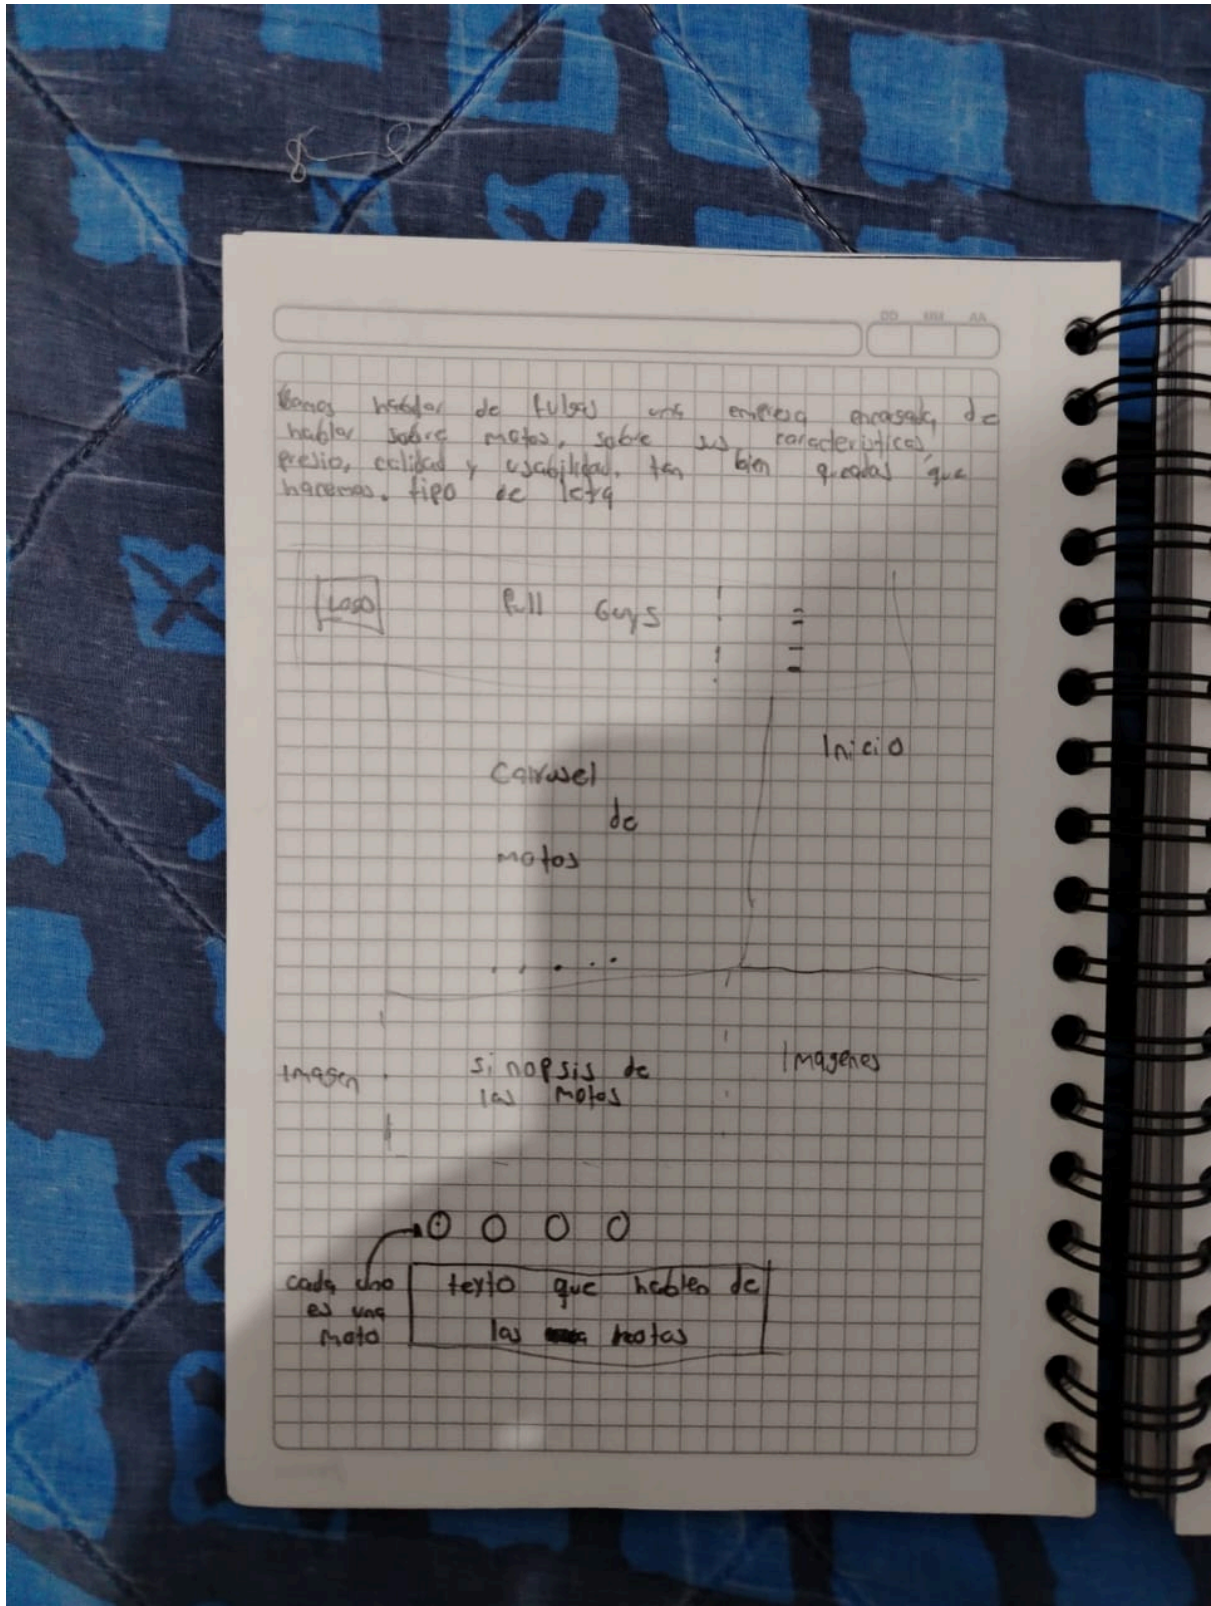 hablar de una empresa de
hablar sobre motos, sobre sus caracteristicas,
presio, calidad y usabilidad. tan bien que
hacemos. tipo de letra
DD MM AA
LOGO
full Guys
Inicio
Carusel
de
motos
Imagen
sinopsis de
las motos
Imagenes
cada uno
es una
moto
texto que hablen de
las motos